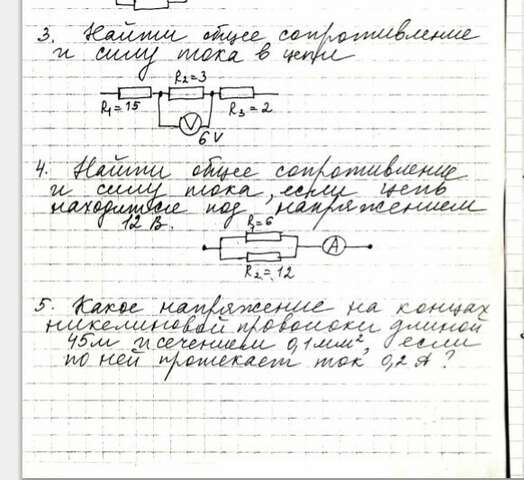 3. Найти общее сопротивление
и силу тока в цепи
R₂=3
R₁=15
R₃=2
V
6 V
4. Найти общее сопротивление
и силу тока, если цепь
находится под напряжением
12 В.
R₁=6
A
R₂=12
5. Какое напряжение на концах
никелиновой проволоки длиной
45м и сечением 0,1 мм², если
по ней протекает ток 0,2 А?